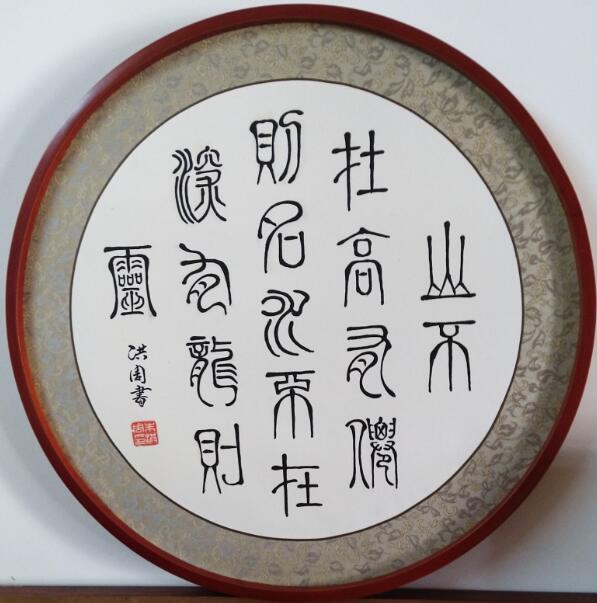 山不
在高有僊
則名水不在
深有龍則
靈
洪周書